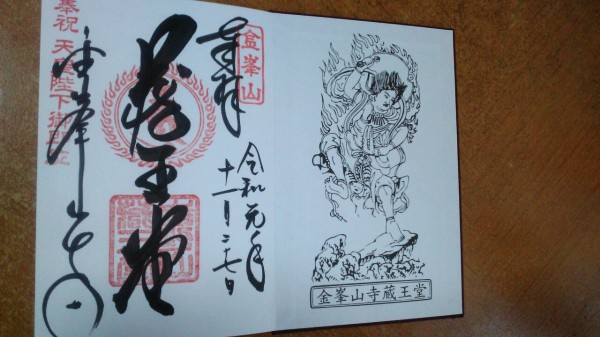 金峯山寺蔵王堂
金峯山
奉拝
令和元年
十一月二七日
蔵王堂
金峯山寺
奉祝 天皇陛下御即位